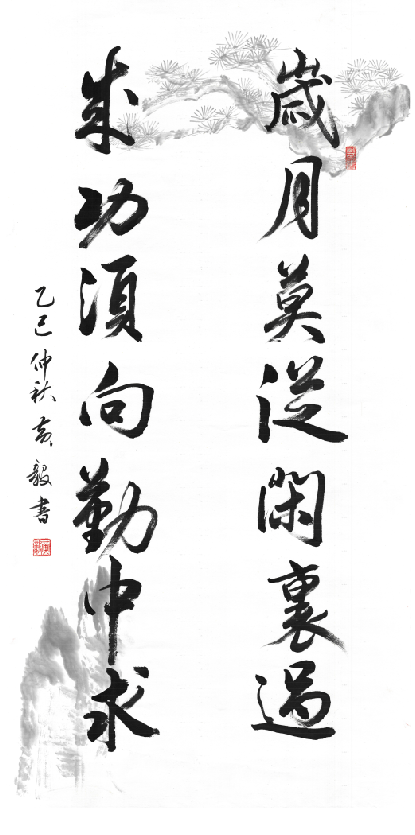 歲月莫從閑裏過
成功須向勤中求
乙巳仲秋黃毅書